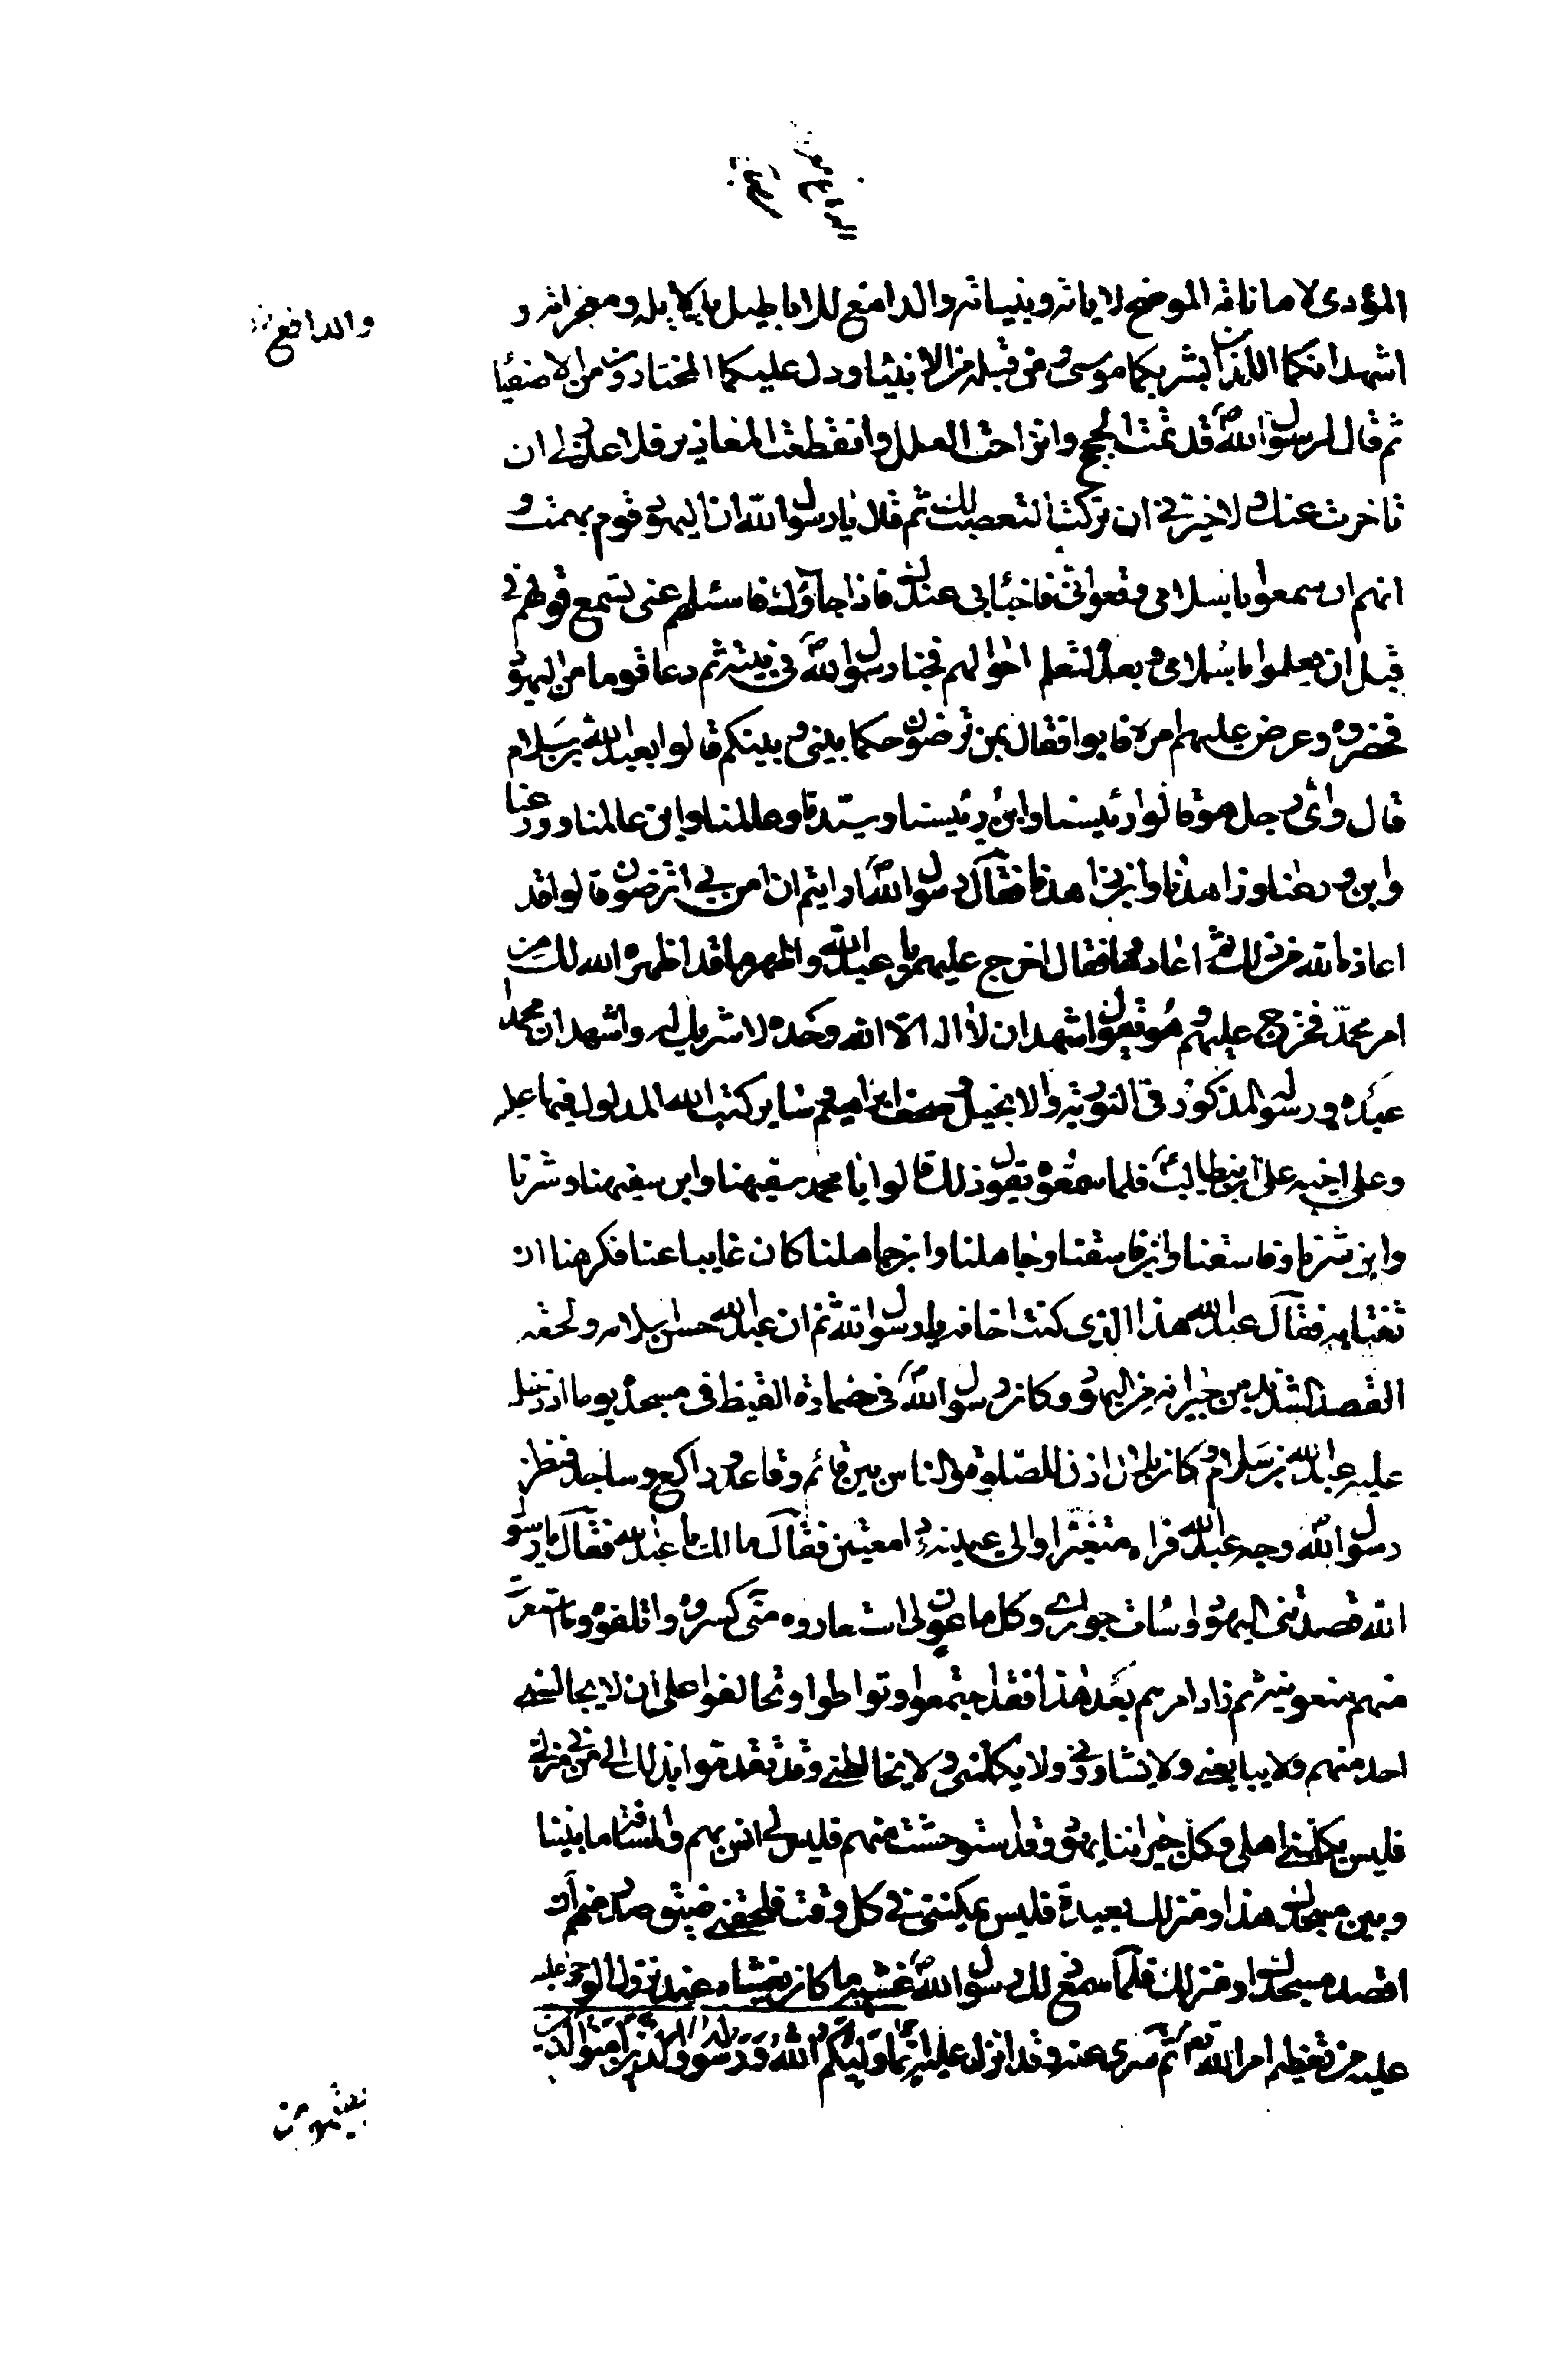 المؤدى لاماناته الموضح لاياته وبيناته والدافع للاباطيل بدلايله ومعجزاته و
والدافع
اشهد انكما اللذان بشر بكما موسى ومن قبله من الانبياء ودل عليكما المختارون من الاصفياء
ثم قال لرسول الله ص قد تمت الحجج وانزاحت العلل وانقطعت المعاذير فلا عذر لى ان
تاخرت عنك ولا خير فى ان تركت التعصب لك ثم قال يا رسول الله ان اليهود قوم بهت و
انهم ان سمعوا باسلامى وقعوا فى فاخبأنى عندك فاذا جاؤك فاسئلهم عنى تسمع قولهم فى
قبل ان يعلموا باسلامى وبعده لتعلم احوالهم فخباه رسول الله ص فى بيته ثم دعا قوما من اليهود
فحضروه وعرض عليهم امره فابوا فقال بمن ترضون حكما بينى وبينكم قالوا بعبد الله بن سلام
قال واى رجل هو قالوا رئيسنا وابن رئيسنا وسيدنا وعالمنا وابن عالمنا وورعنا
وابن ورعنا وزاهدنا وابن زاهدنا فقال رسول الله ص ارايتم ان امن بى اترضون قالوا قد
اعاذه الله من ذلك ثم اعادها فقال اخرج عليهم يا عبد الله واظهر ما قد اظهره الله لك من
امر محمد فخرج عليهم وهو يقول اشهد ان لا اله الا الله وحده لا شريك له واشهد ان محمدا
عبده ورسوله المذكور فى التورية والانجيل وصحف ابراهيم وساير كتب الله المدلول فيها عليه
وعلى اخيه على بن ابى طالب ع فلما سمعوه يقول ذلك قالوا يا محمد سفيهنا وابن سفيهنا وشرنا
وابن شرنا وفاسقنا وابن فاسقنا وجاهلنا وابن جاهلنا كان غايبا عنا فكرهنا ان
نغتابه فقال عبد الله هذا الذى كنت اخافه يا رسول الله ثم ان عبد الله حسن اسلامه ولحقه
القصد الشديد من جيرانه من اليهود وكان رسول الله ص فى حمارة القيظ فى مسجده يوما اذ دخل
عليه عبد الله بن سلام وكان بلال اذن للصلوة والناس بين قائم وقاعد وراكع وساجد فنظر
رسول الله وجه عبد الله فراه متغيرا والى عينيه دامعتين فقال مالك يا عبد الله فقال يا رسول
الله قصدتنى اليهود واساءت جوارى وكل ماعون لى استعاروه منى كسروه واتلفوه وما استعرت
منهم منعونيه ثم زاد امرهم بعد هذا فقد اجتمعوا وتواطوا وتحالفوا على ان لا يجالسنى
احد منهم ولا يبايعنى ولا يشاورنى ولا يكلمنى ولا يخالطنى وقد تقدموا بذلك الى من فى منزلى
فليس يكلمنى اهلى وكل جيراننا يهود وقد استوحشت منهم فليس لى انس بهم والمسافة ما بيننا
وبين مسجدك هذا ومنزلك بعيدة فليس يمكننى فى كل وقت يلحقنى ضيق صدر منهم ان
اقصد مسجدك او منزلك فلما سمع ذلك رسول الله ص غشيه ما كان يغشاه عند نزول الوحى عليه
عليه من تعظيم امر الله تع ثم سرى عنه وقد انزل عليه انما وليكم الله ورسوله والذين امنوا الذين
يقيمون